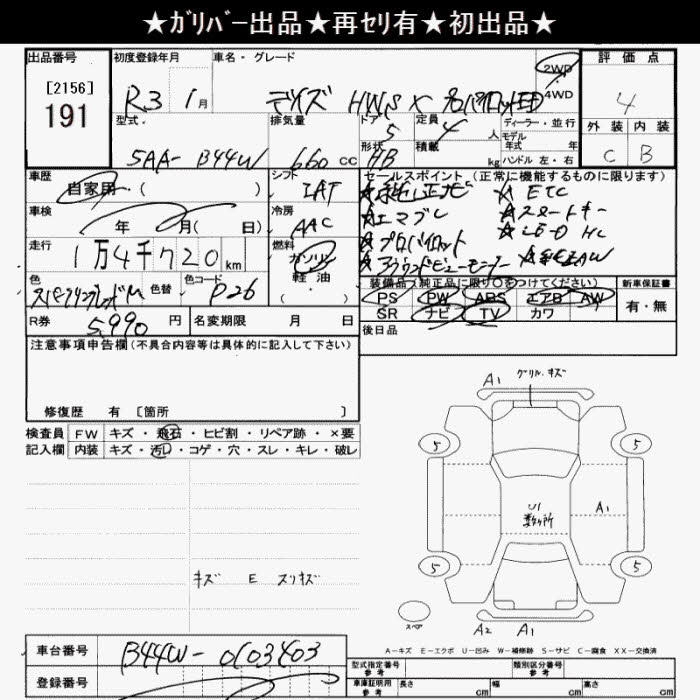 ★ｶﾞﾘﾊﾞｰ出品★再ｾﾘ有★初出品★
出品番号 初度登録年月 車名・グレード 評価点
[2156] 191
R3 1月 デイズ HWS X プロパイロットED 2WD 4WD 4
型式 排気量 ドア 5 定員 4 人 ディーラー・並行 外装 内装
モデル年式 年
5AA- B44W 660 cc 形状 HB 積載 kg ハンドル 左・右 C B
車歴 自家用 ( ) シフト IAT セールスポイント (正常に機能するものに限ります)
★純正ナビ ★ETC
車検 年 月( 日) 冷房 AAC ★エマブレ ★スマートキー
★プロパイロット ★LED HL
走行 1万4千720km 燃料 ガソリン 軽油 ( ・ ) ★アラウンドビューモニター ★純正AW
色 色替 色コード P26 装備品 (純正品に限り○をつけてください) 新車保証書
PS PW ABS エアB AW 有・無
SR ナビ TV カワ
R券 5,990 円 名変期限 月 日 後日品
注意事項申告欄(不具合内容等は具体的に記入して下さい)
修復歴 有 [箇所 ]
検査員 FW キズ・飛石・ヒビ割・リペア跡・×要
記入欄 内装 キズ・汚れ・コゲ・穴・スレ・キレ・破レ
A1 グリル・キズ
5 5
U1 数ヶ所 A1
キズ E スリキズ
5 5
スペア A2 A1
A-キズ E-エクボ U-凹み W-補修跡 S-サビ C-腐食 XX-交換済
車台番号 B44W-0103403
登録番号
型式指定番号 参考 類別区分番号 参考
車庫証明用 参考 長さ cm 幅 cm 高さ cm